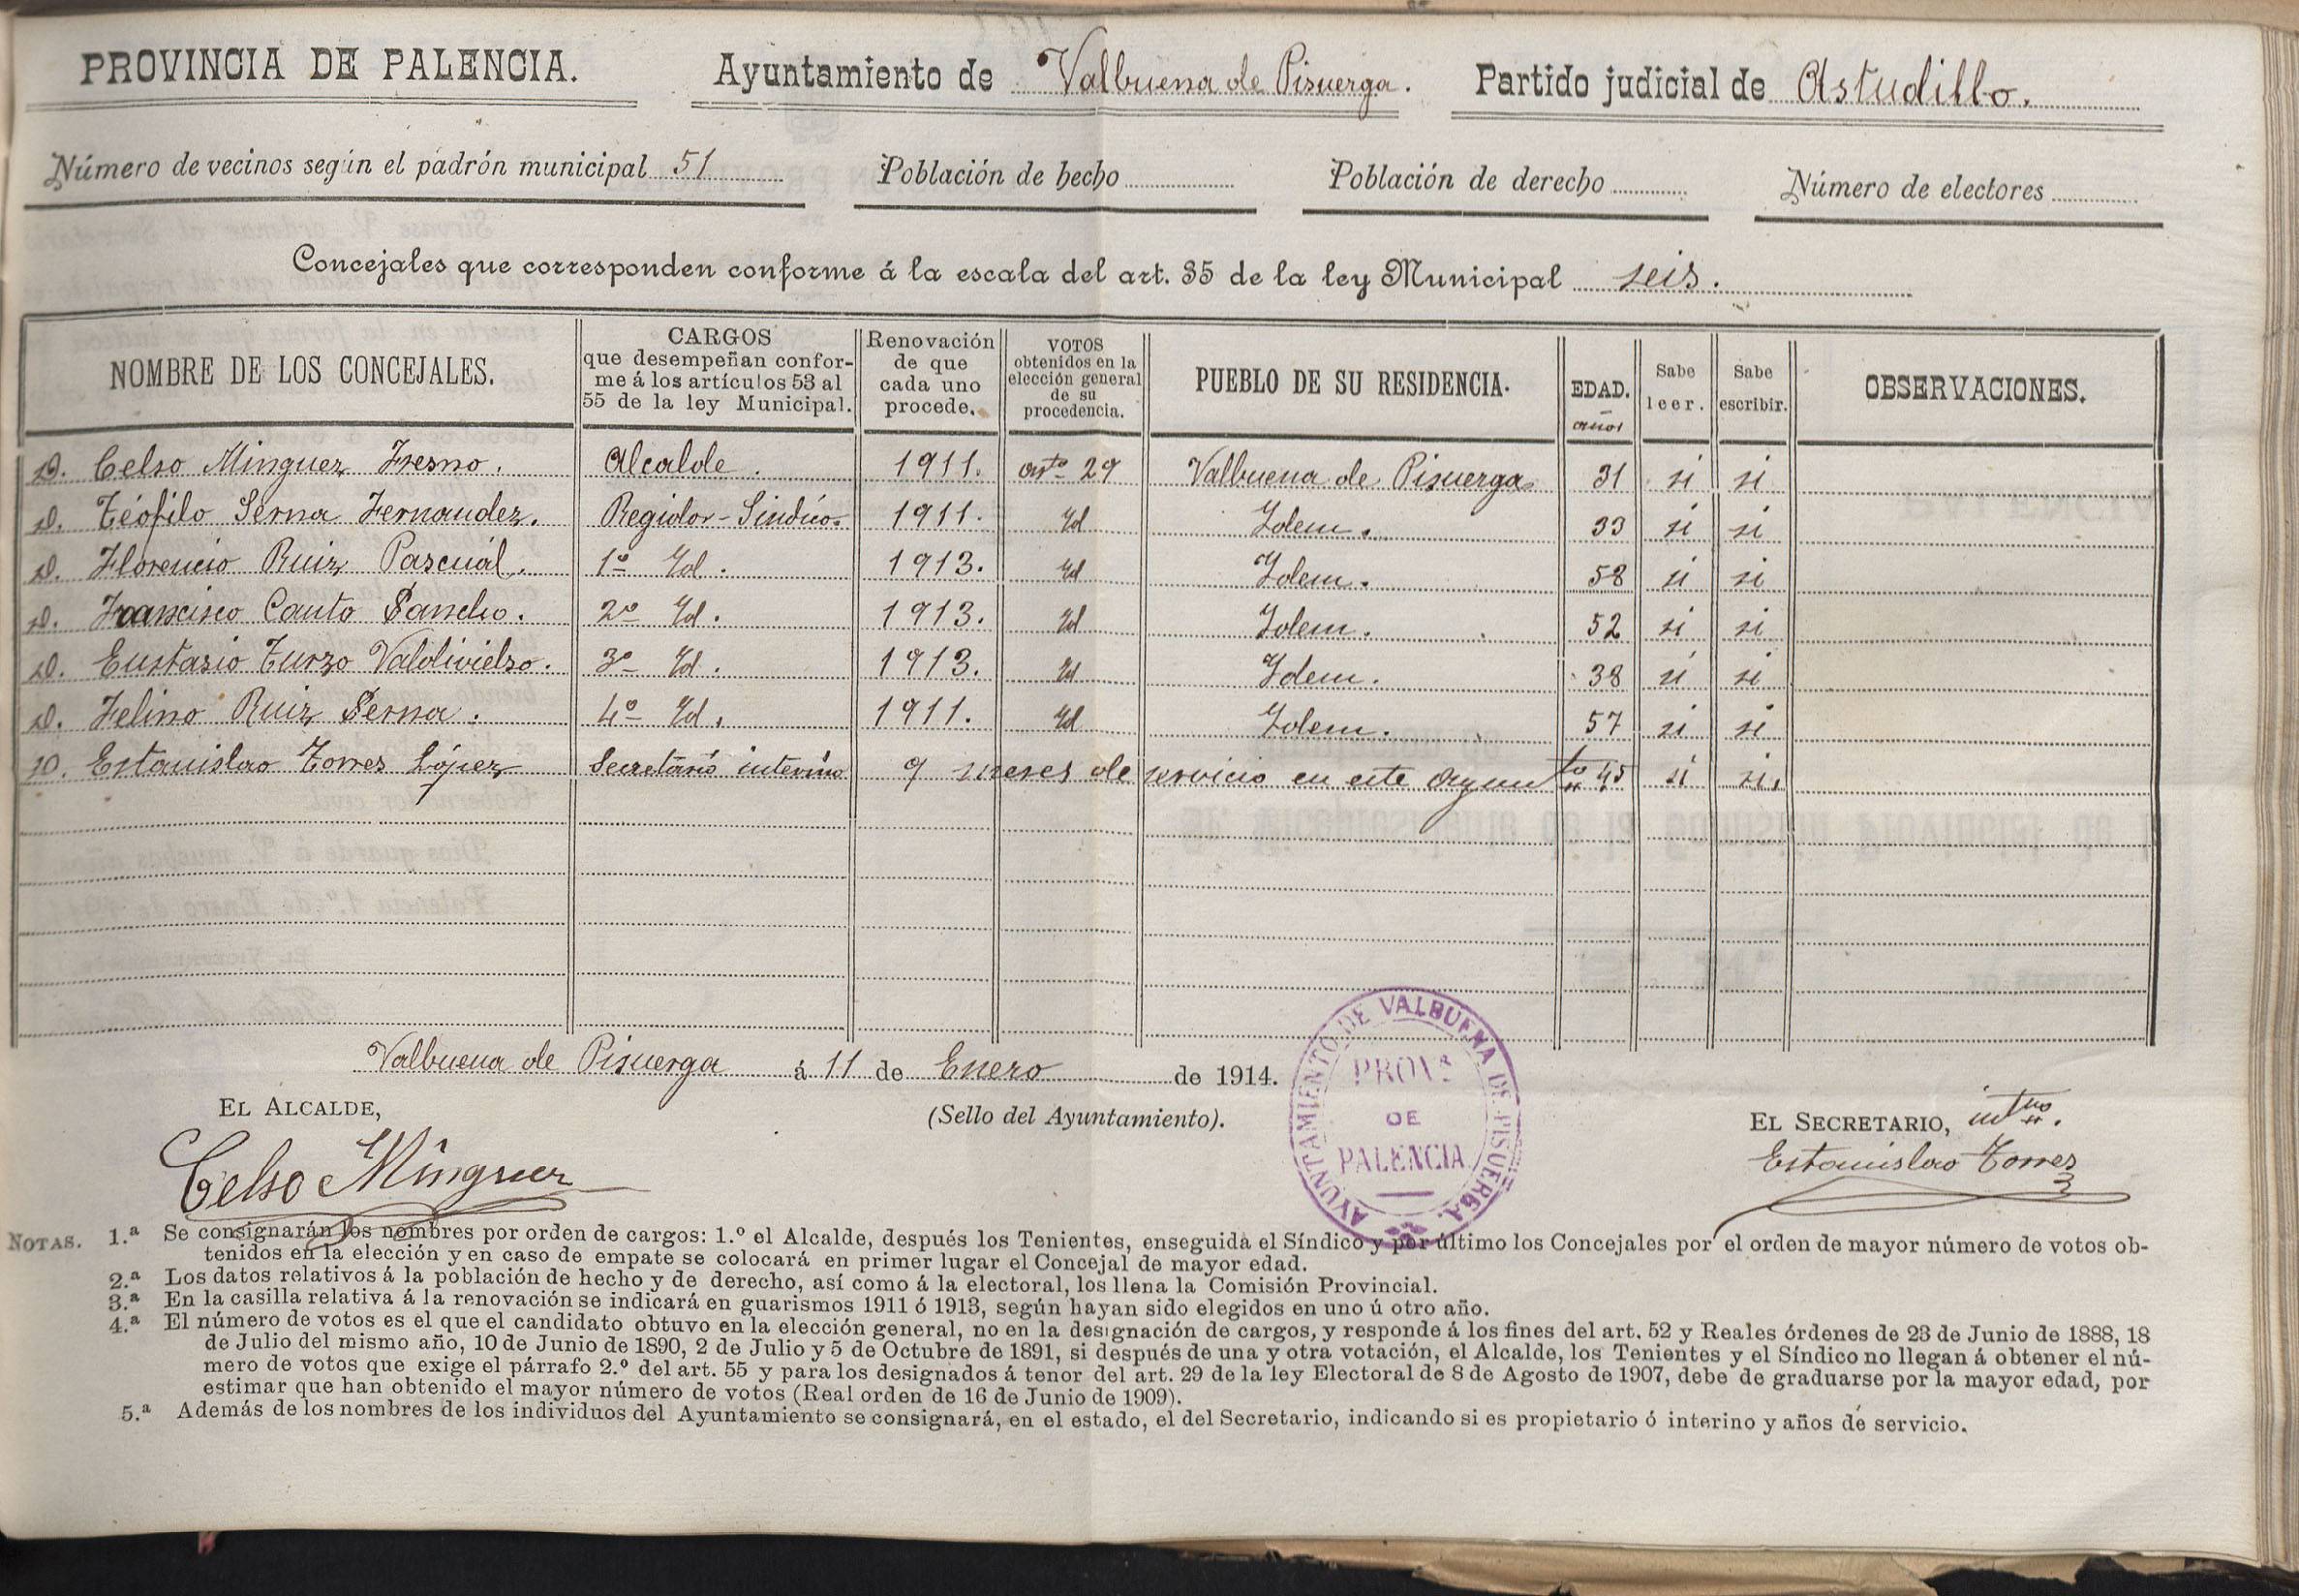 PROVINCIA DE PALENCIA. Ayuntamiento de Valbuena de Pisuerga. Partido judicial de Astudillo.
Número de vecinos según el padrón municipal 51 Población de hecho Población de derecho Número de electores
Concejales que corresponden conforme á la escala del art. 35 de la ley Municipal seis.
NOMBRE DE LOS CONCEJALES. CARGOS que desempeñan conforme á los artículos 53 al 55 de la ley Municipal. Renovación de que cada uno procede. VOTOS obtenidos en la elección general de su procedencia. PUEBLO DE SU RESIDENCIA. EDAD. años Sabe leer. Sabe escribir. OBSERVACIONES.
D. Celso Minguez Fresno. Alcalde. 1911. arto 29 Valbuena de Pisuerga 31 si si
D. Teófilo Serna Fernandez. Regidor-Sindico. 1911. Id Idem. 33 si si
D. Florencio Ruiz Pascual. 1º Id. 1913. Id Idem. 58 si si
D. Francisco Cauto Sancho. 2º Id. 1913. Id Idem. 52 si si
D. Eustasio Turzo Valdivielso. 3º Id. 1913. Id Idem. 38 si si
D. Felino Ruiz Serna. 4º Id. 1911. Id Idem. 57 si si
D. Estanislao Torres López Secretario interino 9 meses de servicio en este Ayunto 45 si si.
Valbuena de Pisuerga á 11 de Enero de 1914.
EL ALCALDE, (Sello del Ayuntamiento). EL SECRETARIO, intno.
Celso Minguez Estanislao Torres
AYUNTAMIENTO DE VALBUENA DE PISUERGA.
PROVª
DE
PALENCIA
NOTAS. 1.ª Se consignarán los nombres por orden de cargos: 1.º el Alcalde, después los Tenientes, enseguida el Síndico y por último los Concejales por el orden de mayor número de votos ob-
tenidos en la elección y en caso de empate se colocará en primer lugar el Concejal de mayor edad.
2.ª Los datos relativos á la población de hecho y de derecho, así como á la electoral, los llena la Comisión Provincial.
3.ª En la casilla relativa á la renovación se indicará en guarismos 1911 ó 1913, según hayan sido elegidos en uno ú otro año.
4.ª El número de votos es el que el candidato obtuvo en la elección general, no en la designación de cargos, y responde á los fines del art. 52 y Reales órdenes de 23 de Junio de 1888, 18
de Julio del mismo año, 10 de Junio de 1890, 2 de Julio y 5 de Octubre de 1891, si después de una y otra votación, el Alcalde, los Tenientes y el Síndico no llegan á obtener el nú-
mero de votos que exige el párrafo 2.º del art. 55 y para los designados á tenor del art. 29 de la ley Electoral de 8 de Agosto de 1907, debe de graduarse por la mayor edad, por
estimar que han obtenido el mayor número de votos (Real orden de 16 de Junio de 1909).
5.ª Además de los nombres de los individuos del Ayuntamiento se consignará, en el estado, el del Secretario, indicando si es propietario ó interino y años de servicio.